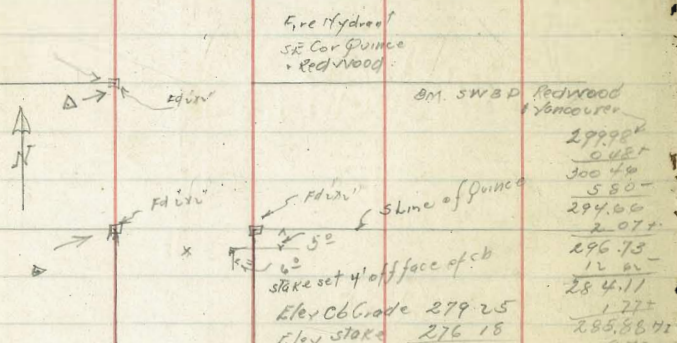 Fire Hydrant
SE Cor Quince
& Redwood
BM. SWBP Redwood
& Vancouver
299.98
0.48+
300.46
5.80-
294.66
2.07+
296.73
12.62-
284.11
1.77+
285.88 HI
Fd 2"x2"
N
Fd 2"x2"
Fd 2"x2"
S Line of Quince
5⁰
x
6⁰
stake set 4' off face of cb
Elev Cb Grade 279 25
Elev Stake 276 18